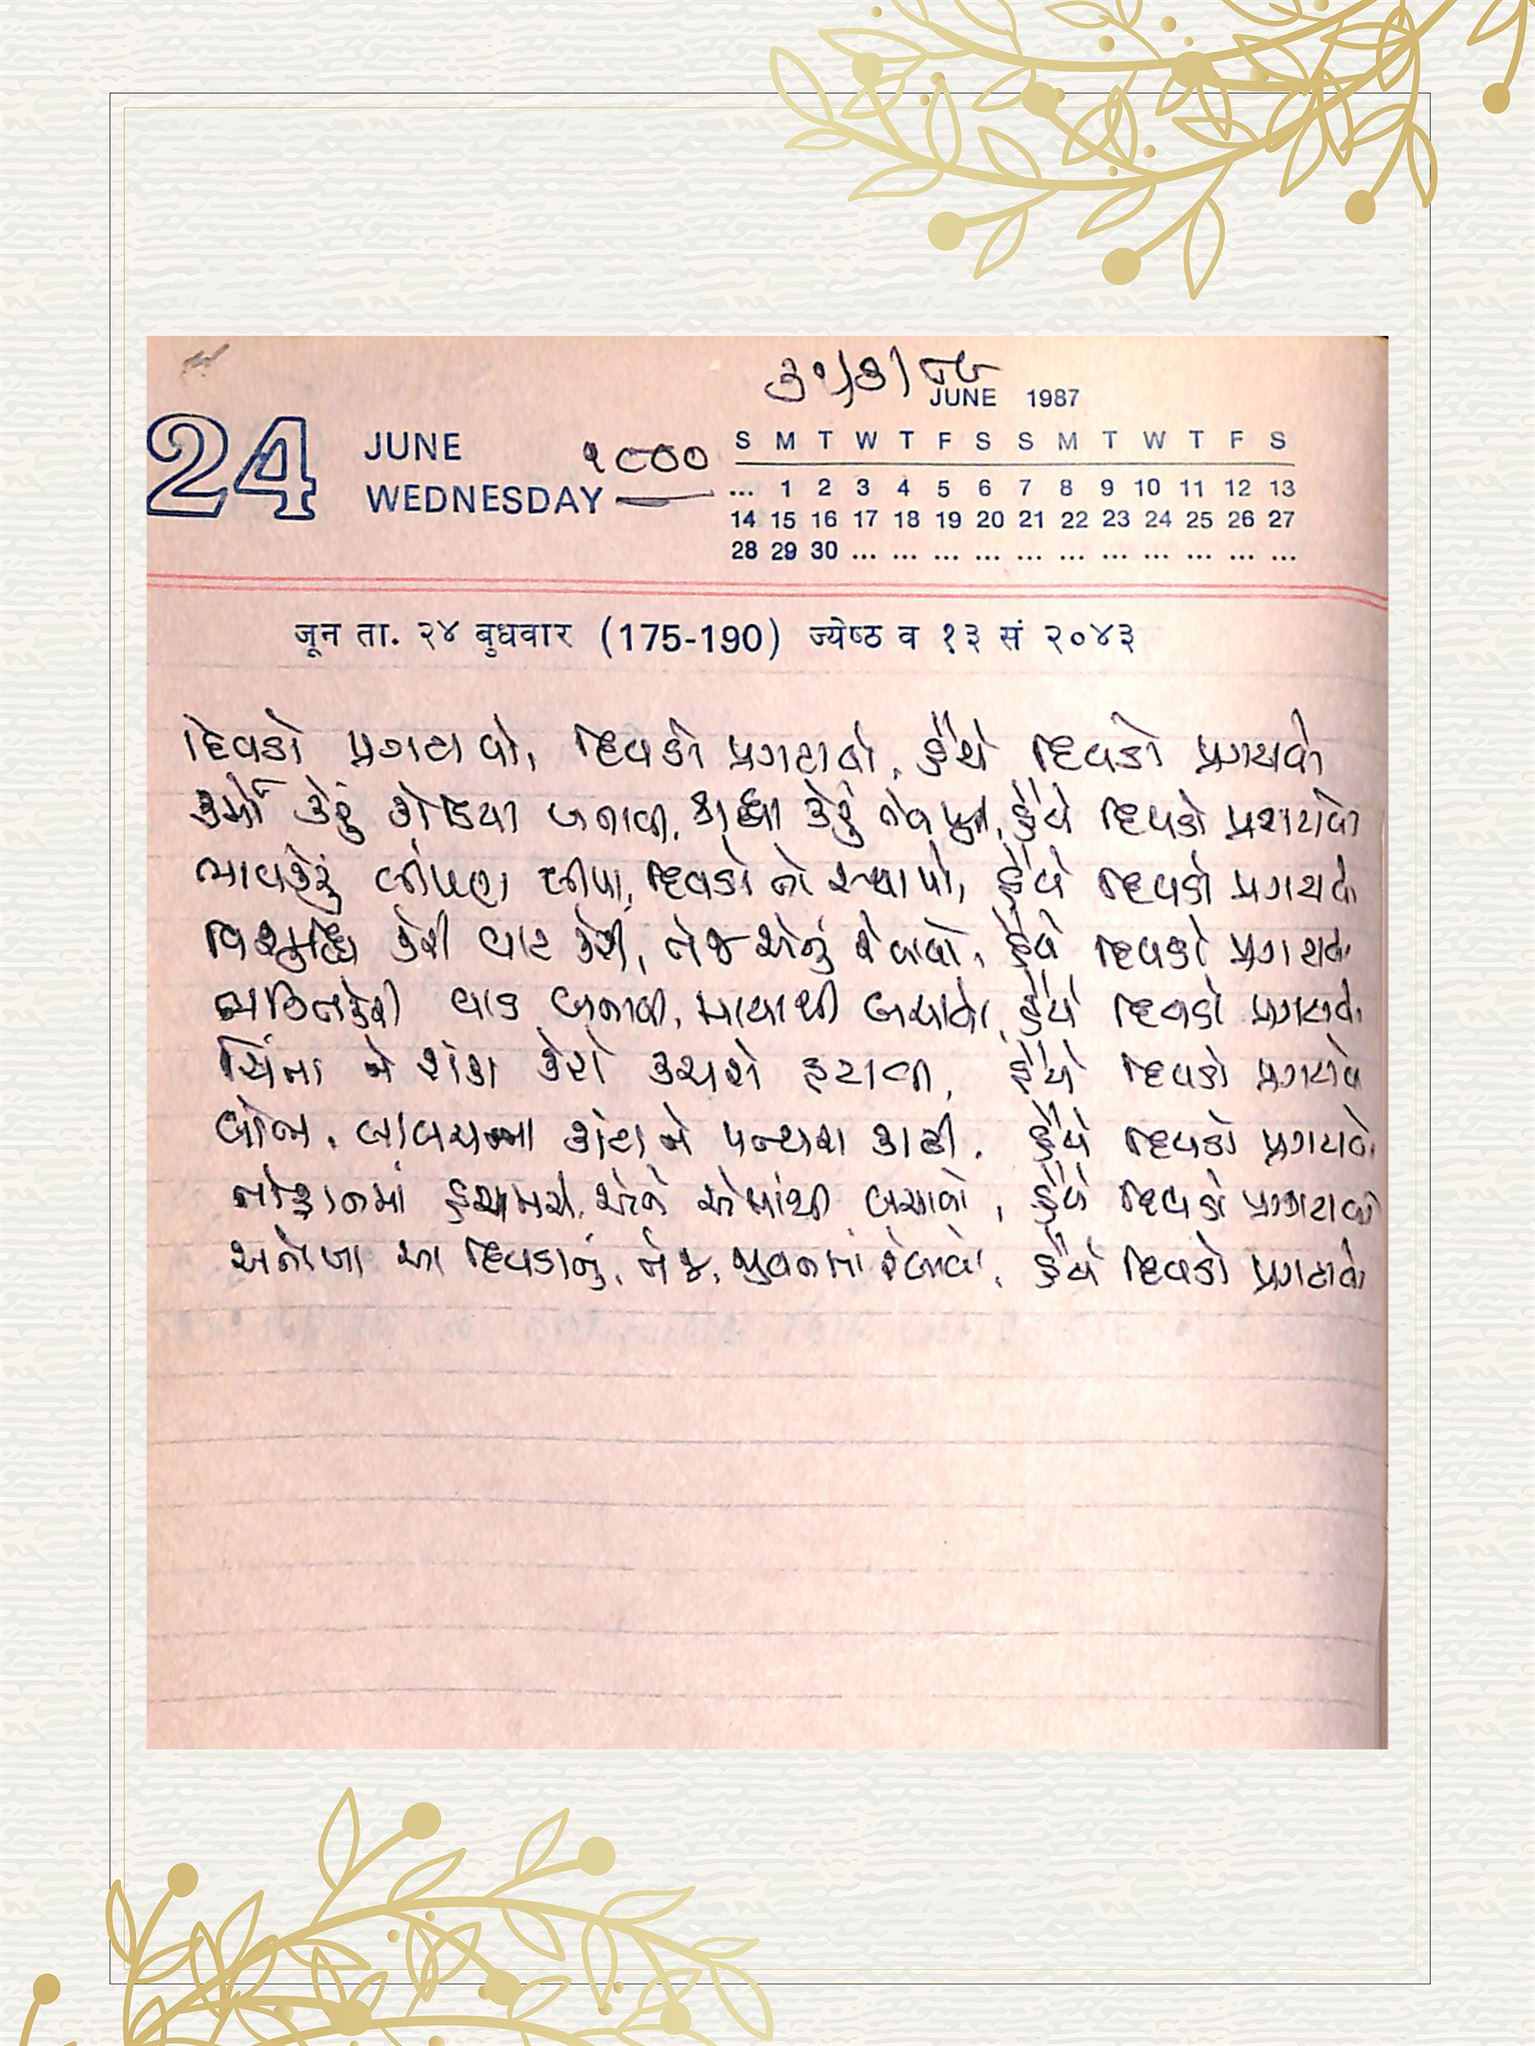 ૩૧/૩/૮૮
JUNE 1987
24 JUNE ૧૮૦૦ S M T W T F S S M T W T F S
WEDNESDAY ... 1 2 3 4 5 6 7 8 9 10 11 12 13
14 15 16 17 18 19 20 21 22 23 24 25 26 27
28 29 30 ... ... ... ... ... ... ... ... ... ... ...
जून ता. २४ बुधवार (175-190) ज्येष्ठ व १३ सं २०४३
દિવડો પ્રગટાવો, દિવડો પ્રગટાવો, હૈયે દિવડો પ્રગટાવો
કર્મો કેરું કોડિયા બનાવી, શ્રદ્ધા કેરું તેલ પુરી, હૈયે દિવડો પ્રગટાવો
ભાવકેરું લીંપણ લીપી, દિવડો તો સ્થાપો, હૈયે દિવડો પ્રગટાવો
વિશુદ્ધિ કેરી વાટ કરી, તેજ એનું રેલાવો, હૈયે દિવડો પ્રગટાવો
ભક્તિકેરી વાડ બનાવી, માયાથી બચાવો, હૈયે દિવડો પ્રગટાવો
ચિંતા ને શંકા કેરો કચરો હટાવી, હૈયે દિવડો પ્રગટાવો
લોભ, લાલચના કાંટા ને પથ્થરા કાઢી, હૈયે દિવડો પ્રગટાવો
તોફાનમાં હચમચે, એને એમાંથી બચાવો, હૈયે દિવડો પ્રગટાવો
અનોખા આ દિવડાનું, તેજ, જીવનમાં રેલાવો, હૈયે દિવડો પ્રગટાવો